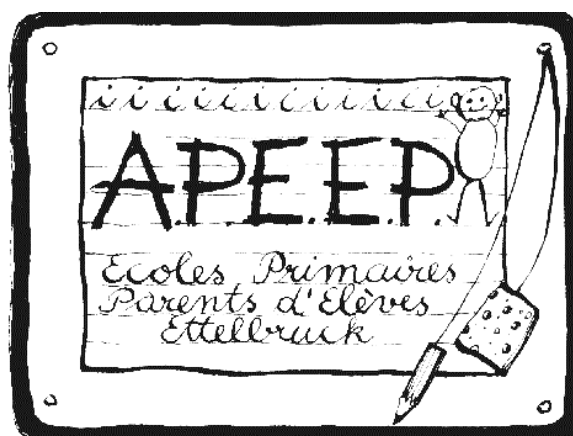 i i i i i i i i i i i i i
A.P.E.E.P.
Ecoles Primaires
Parents d'Elèves
Ettelbruck